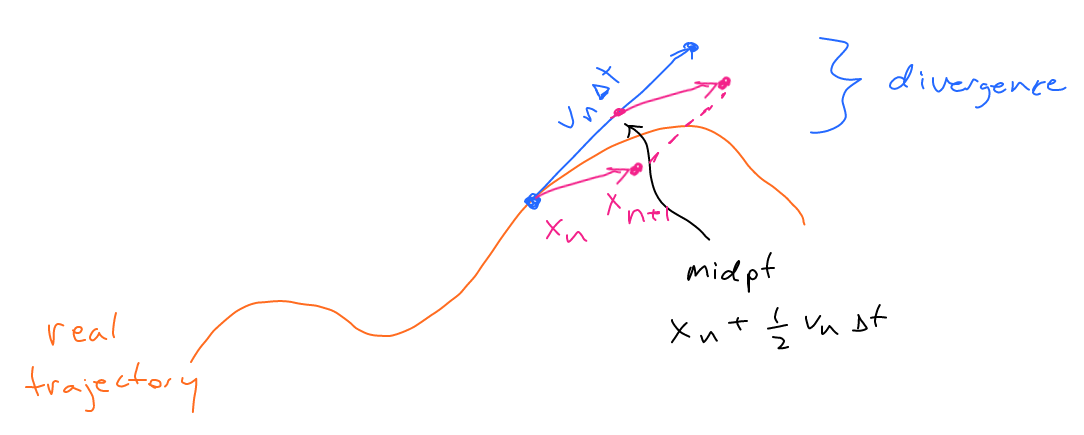 divergence
vₙ Δt
xₙ
xₙ₊₁
midpt
xₙ + 1/2 vₙ Δt
real
trajectory